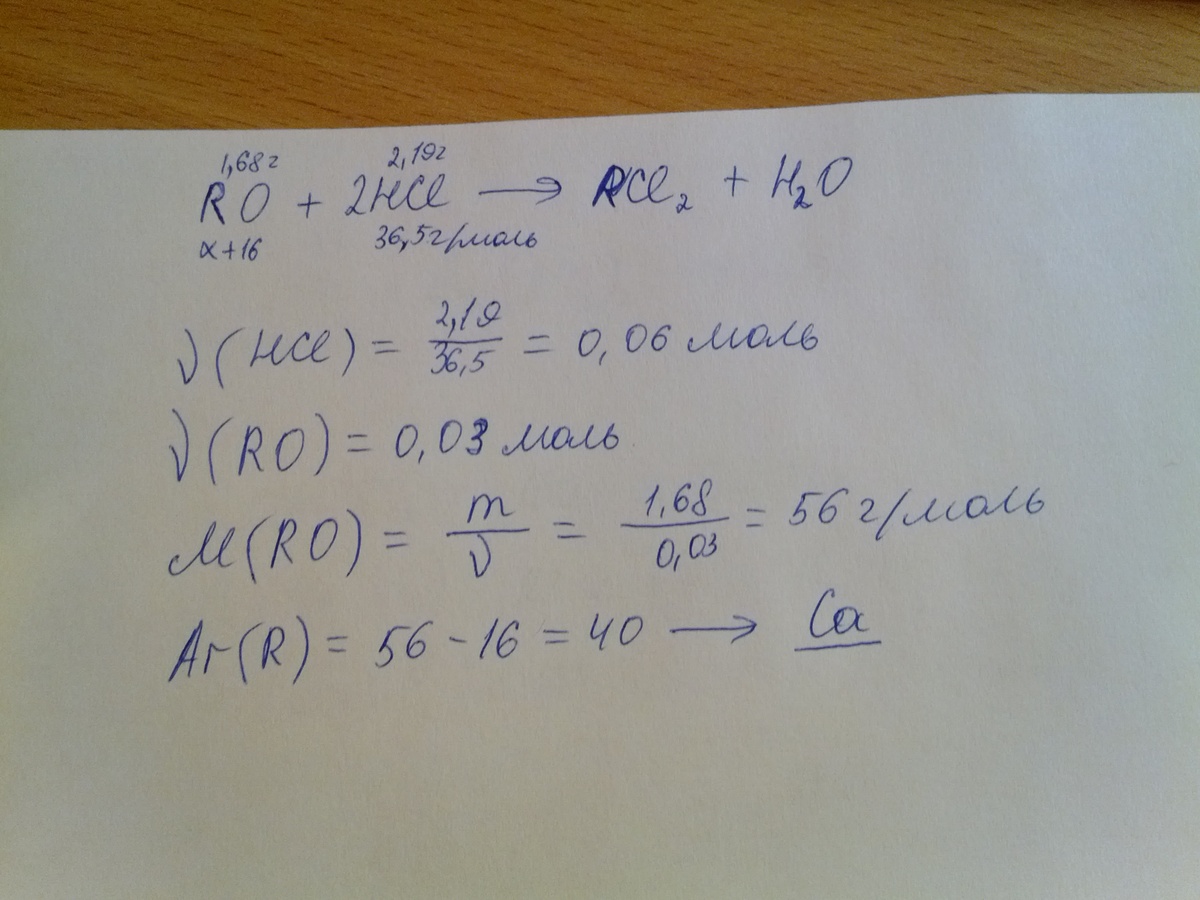 1,68г 2,19г
RO + 2HCl → RCl₂ + H₂O
x+16 36,5г/моль
ν(HCl) = 2,19/36,5 = 0,06 моль
ν(RO) = 0,03 моль
M(RO) = m/ν = 1,68/0,03 = 56 г/моль
Ar(R) = 56 - 16 = 40 → Ca